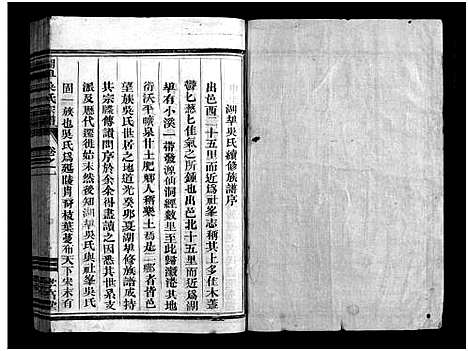 湖㘰吳氏續修族譜序
出邑酉二十五里而近爲社峯志稱其上多佳木蓋
鬱七葱七佳氣之所鍾也出邑北十五里而近爲湖
㘰有小溪一帶發源仙洞經數里至此歸瀲港其地
衍沃平曠泉甘土肥鄉人稱樂土焉是二鄉者皆邑
望族吳氏世居之地道光癸卯夏湖㘰修族譜成持
其宗牒傳諸問序於余余得盡讀之因悉其世系支
派及歷代遷徙始末然後知湖㘰吳氏與社峯吳氏
固一族也吳氏爲延陵肖裔枝葉蔓布天下宋末有
吳氏宗譜
卷之一